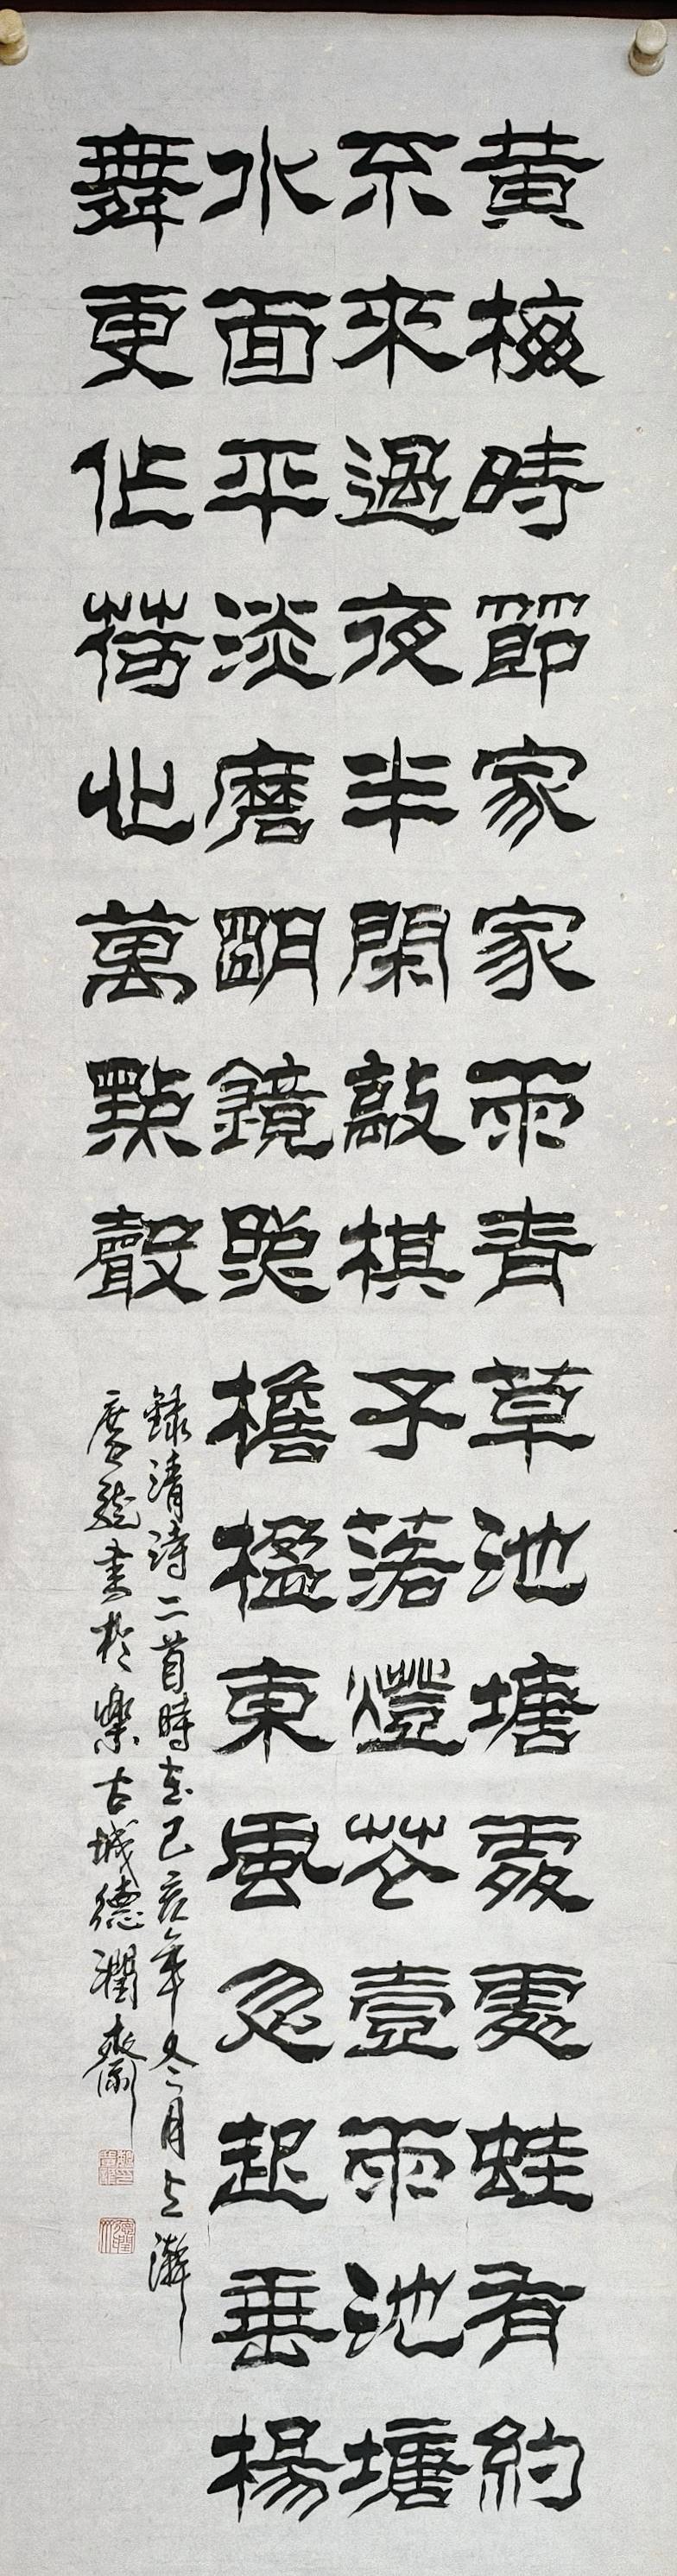 黃梅時節家家雨青草池塘處處蛙有約
不來過夜半閑敲棋子落燈花壹雨池塘
水面平淡磨明鏡照檐楹東風忽起垂楊
舞更作荷心萬點聲
錄清詩二首時在己亥年冬月上澣
慶龍書於樂古城德潤齋